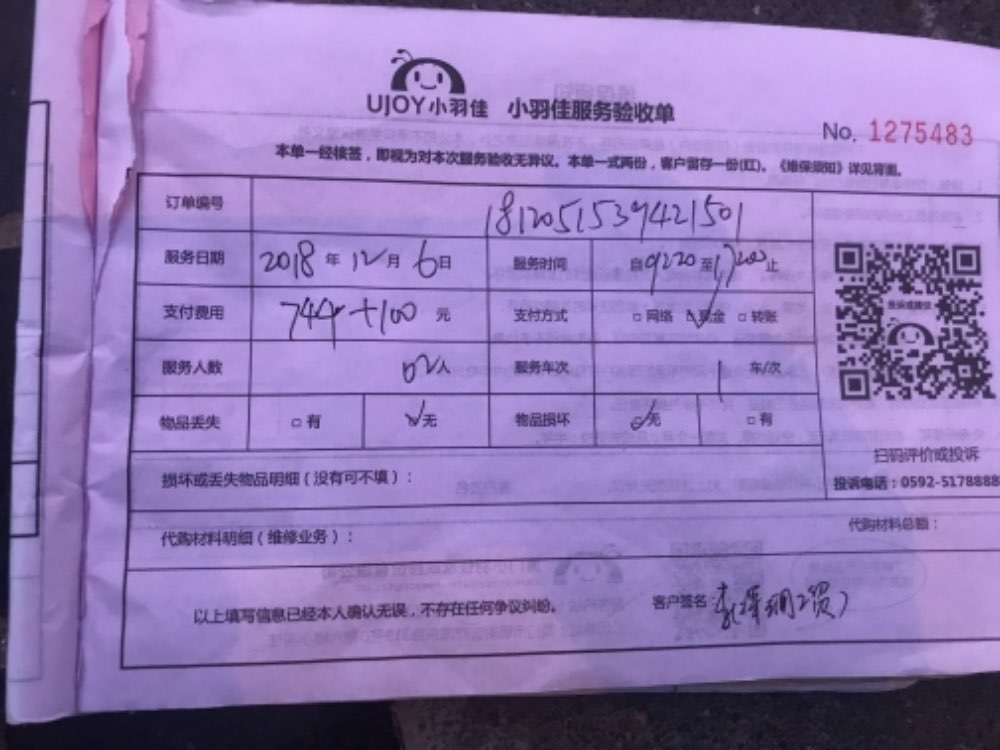 UJOY小羽佳 小羽佳服务验收单
No. 1275483
本单一经接签，即视为对本次服务验收无异议。本单一式两份，客户留存一份(红)。《维保须知》详见背面。
订单编号 181205153942150​1
服务日期 2018年12月6日 服务时间 自9220至17200止
支付费用 744+100元 支付方式 □网络 ☑现金 □转账
服务人数 02人 服务车次 1车/次
物品丢失 □有 ☑无 物品损坏 ☑无 □有
扫码评价或投诉
损坏或丢失物品明细（没有可不填）：
投诉电话：0592-5178888
代购材料明细（维修业务）： 代购材料总额：
以上填写信息已经本人确认无误，不存在任何争议纠纷。 客户签名：
投诉或建议